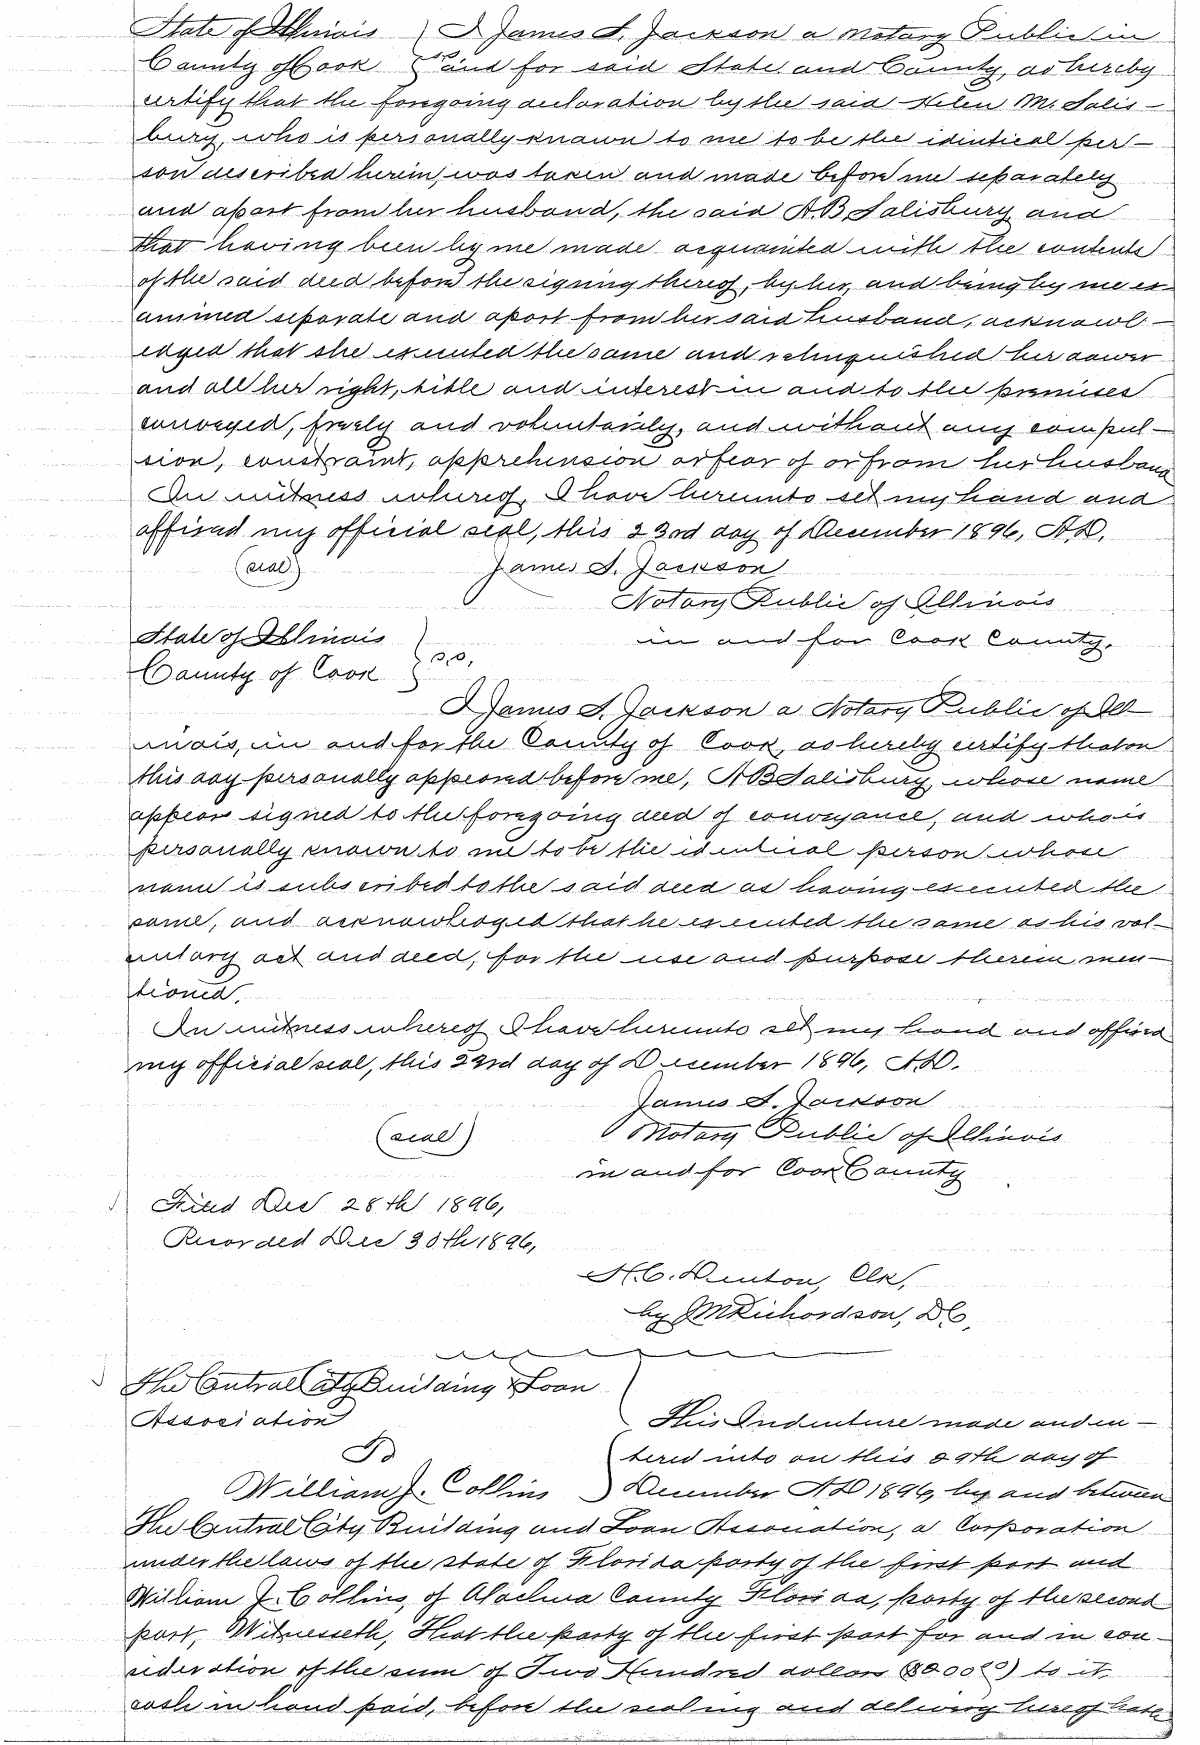 State of Illinois } I James S. Jackson a Notary Public in
County of Cook } ss and for said State and County, do hereby
certify that the foregoing declaration by the said Helen M. Salis-
bury, who is personally known to me to be the identical per-
son described herein, was taken and made before me separately
and apart from her husband, the said A.B. Salisbury, and
that having been by me made acquainted with the contents
of the said deed before the signing thereof, by her, and being by me ex-
amined separate and apart from her said husband, acknowl-
edged that she executed the same and relinquished her dower
and all her right, title and interest in and to the premises
conveyed, freely and voluntarily, and without any compul-
sion, constraint, apprehension or fear of or from her husband
In witness whereof, I have hereunto set my hand and
affixed my official seal, this 23rd day of December 1896, A.D.
(seal) James S. Jackson
Notary Public of Illinois
State of Illinois } in and for Cook County.
County of Cook } s.s.
I James S. Jackson a Notary Public of Ill-
inois, in and for the County of Cook, do hereby certify that on
this day personally appeared before me, A B Salisbury, whose name
appear signed to the foregoing deed of conveyance, and who is
personally known to me to be the identical person whose
name is subscribed to the said deed as having executed the
same, and acknowledged that he executed the same as his vol-
untary act and deed, for the use and purpose therein men-
tioned.
In witness whereof I have hereunto set my hand and affixed
my official seal, this 23rd day of December 1896, A.D.
James S. Jackson
(seal) Notary Public of Illinois
in and for Cook County
Filed Dec 28th 1896,
Recorded Dec 30th 1896,
H.C. Denton, Clk,
by J M Richardson, D C,
The Central City Building & Loan
Association } This Indenture made and en-
To } tered into on this 29th day of
William J. Collins } December A D 1896, by and between
The Central City Building and Loan Association, a Corporation
under the laws of the state of Florida party of the first part and
William J. Collins, of Alachua County Florida, party of the second
part, Witnesseth, That the party of the first part for and in con-
sideration of the sum of Two Hundred dollars ($200.00) to it,
cash in hand paid, before the sealing and delivery hereof hath